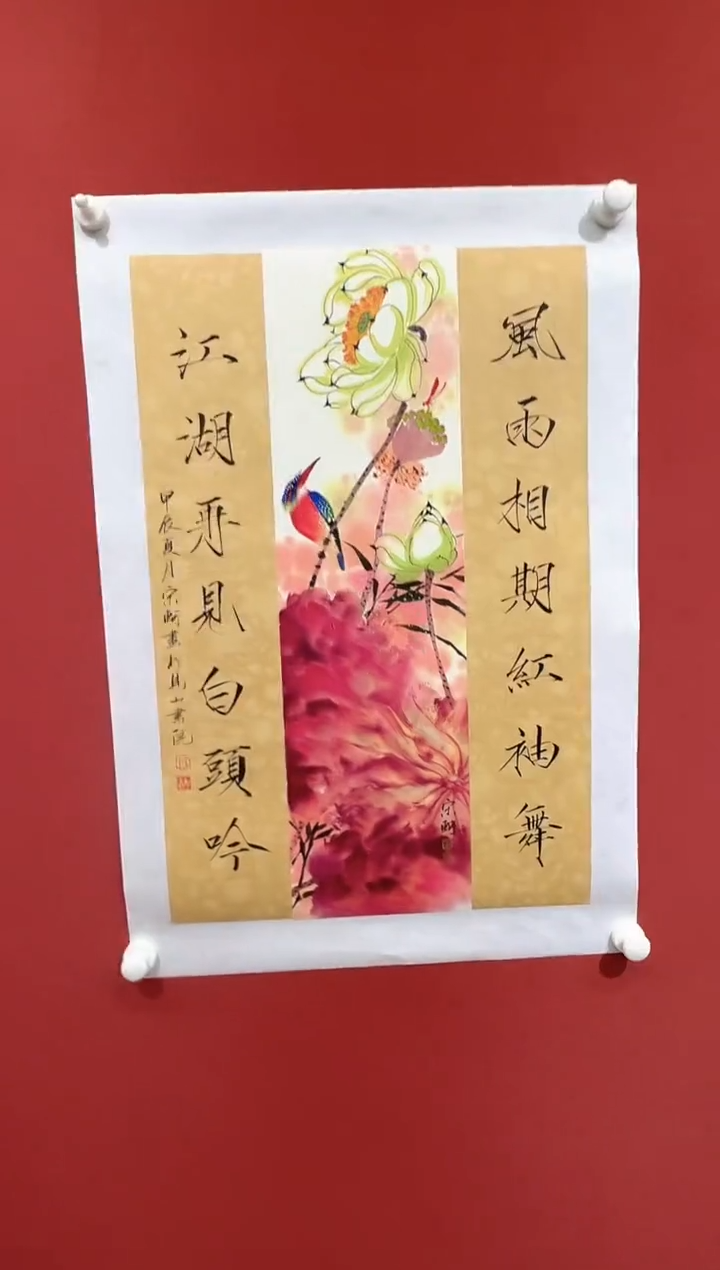 風雨相期紅袖舞
江湖再見白頭吟
甲辰夏月宗
山書院